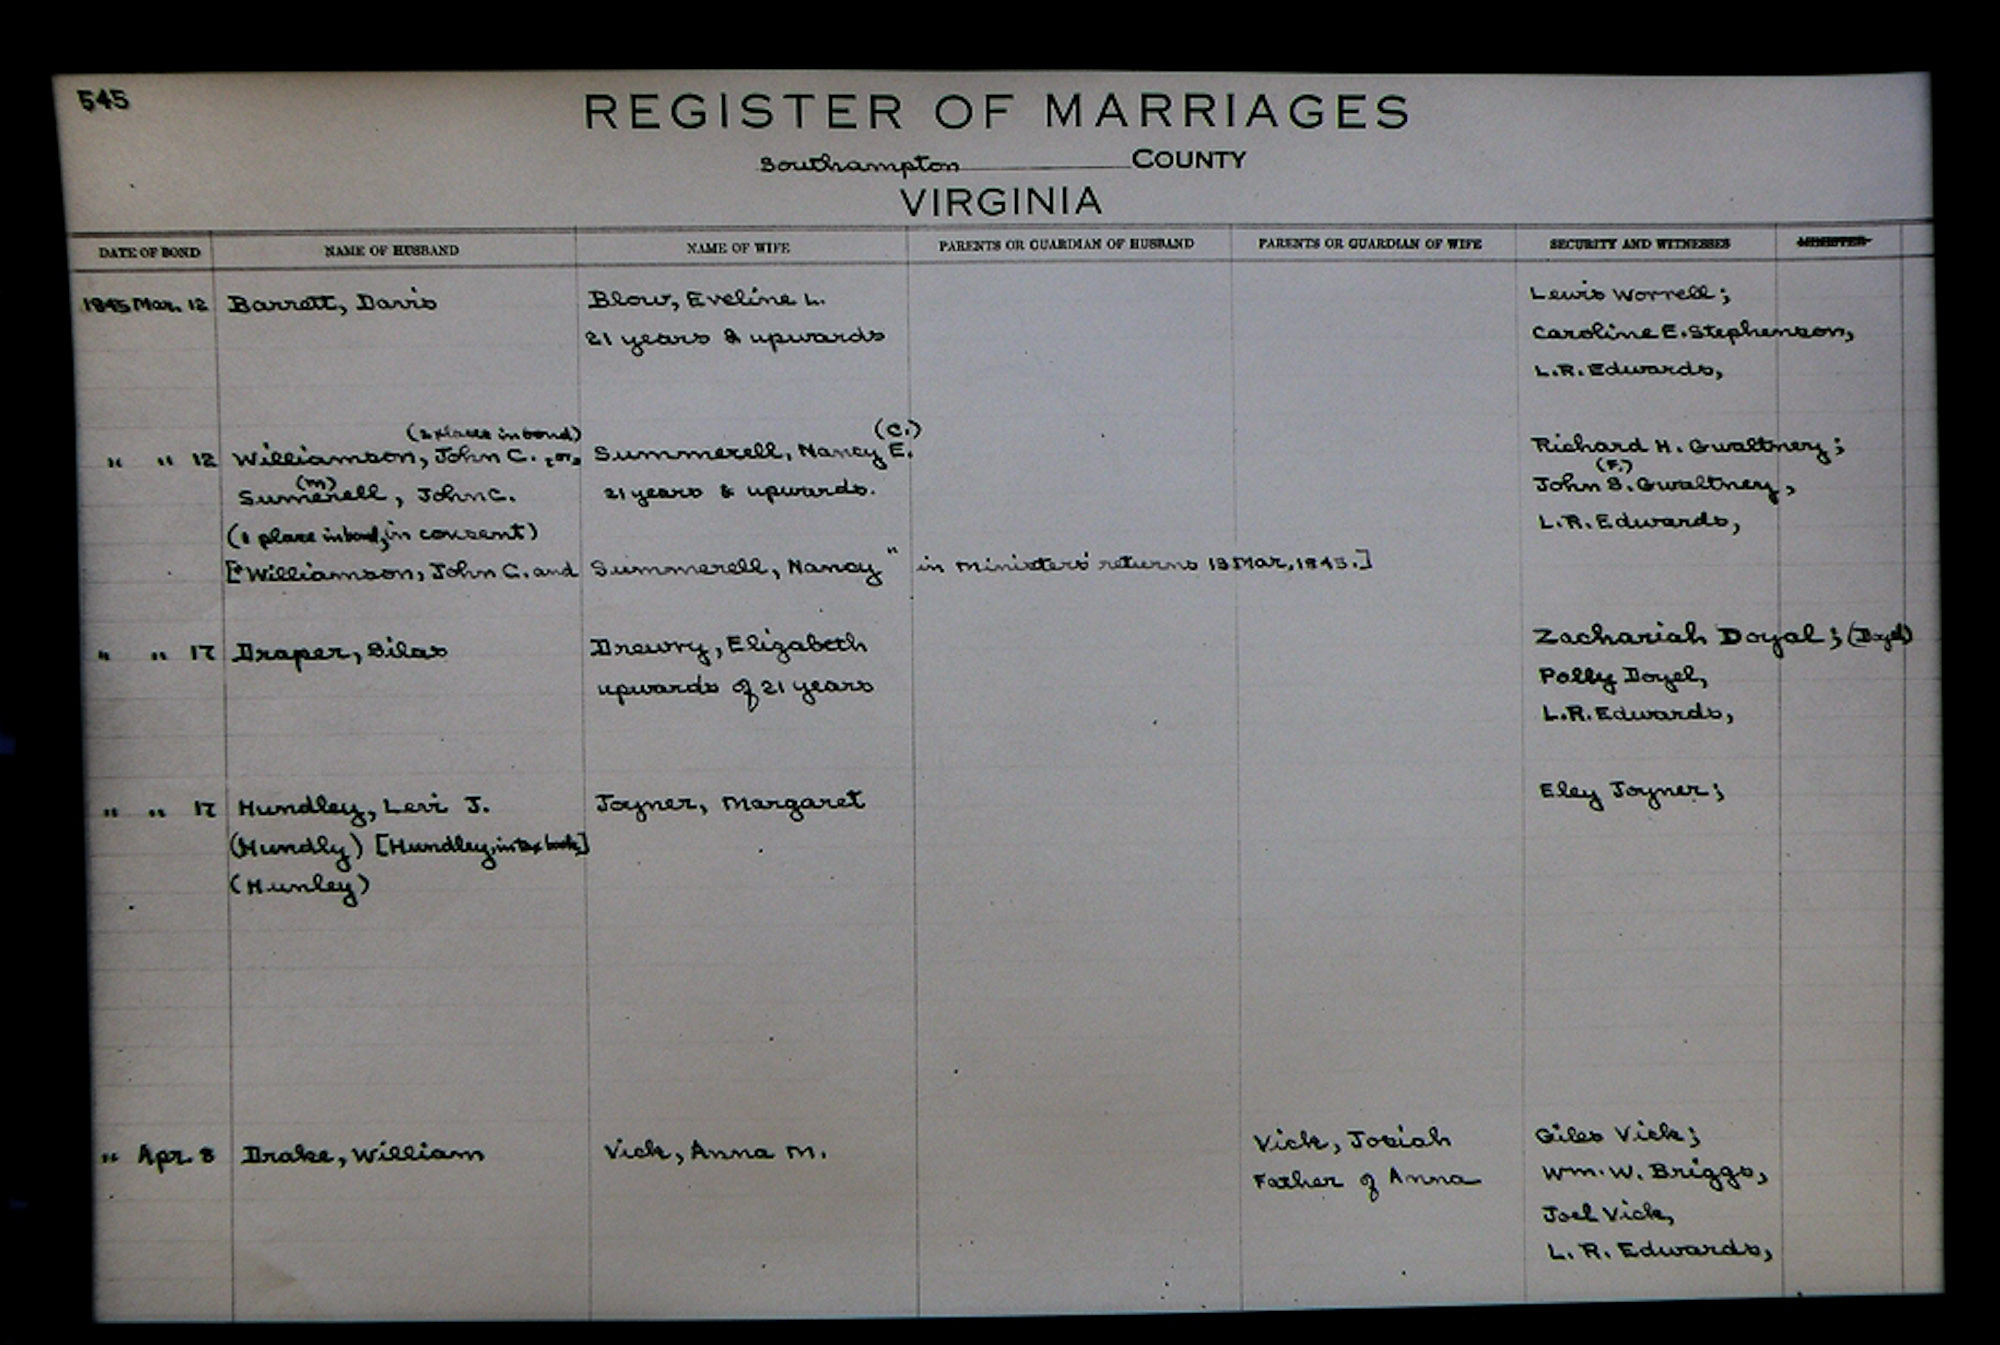 545
REGISTER OF MARRIAGES
Southampton COUNTY
VIRGINIA
DATE OF BOND NAME OF HUSBAND NAME OF WIFE PARENTS OR GUARDIAN OF HUSBAND PARENTS OR GUARDIAN OF WIFE SECURITY AND WITNESSES MINISTER
1845 Mar. 12 Barrett, Davis Blow, Eveline L. Lewis Worrell;
21 years & upwards Caroline E. Stephenson,
L.R. Edwards,
(2 place in bond) (C.)
" " 12 Williamson, John C., or, Summerell, Nancy E. Richard H. Gwaltney;
(m) (F.)
Sumerell, John C. 21 years & upwards. John S. Gwaltney,
(1 place in bond, in consent) L.R. Edwards,
["Williamson, John C. and Summerell, Nancy" in Ministers' returns 13 Mar, 1845.]
" " 17 Draper, Silas Drewry, Elizabeth Zachariah Doyal; (Doyel)
upwards of 21 years Polly Doyel,
L.R. Edwards,
" " 17 Hundley, Levi J. Joyner, Margaret Eley Joyner;
(Hundly) [Hundley, in tax book]
(Hunley)
" Apr. 8 Drake, William Vick, Anna M. Vick, Josiah Giles Vick;
Father of Anna Wm. W. Briggs,
Joel Vick,
L. R. Edwards,